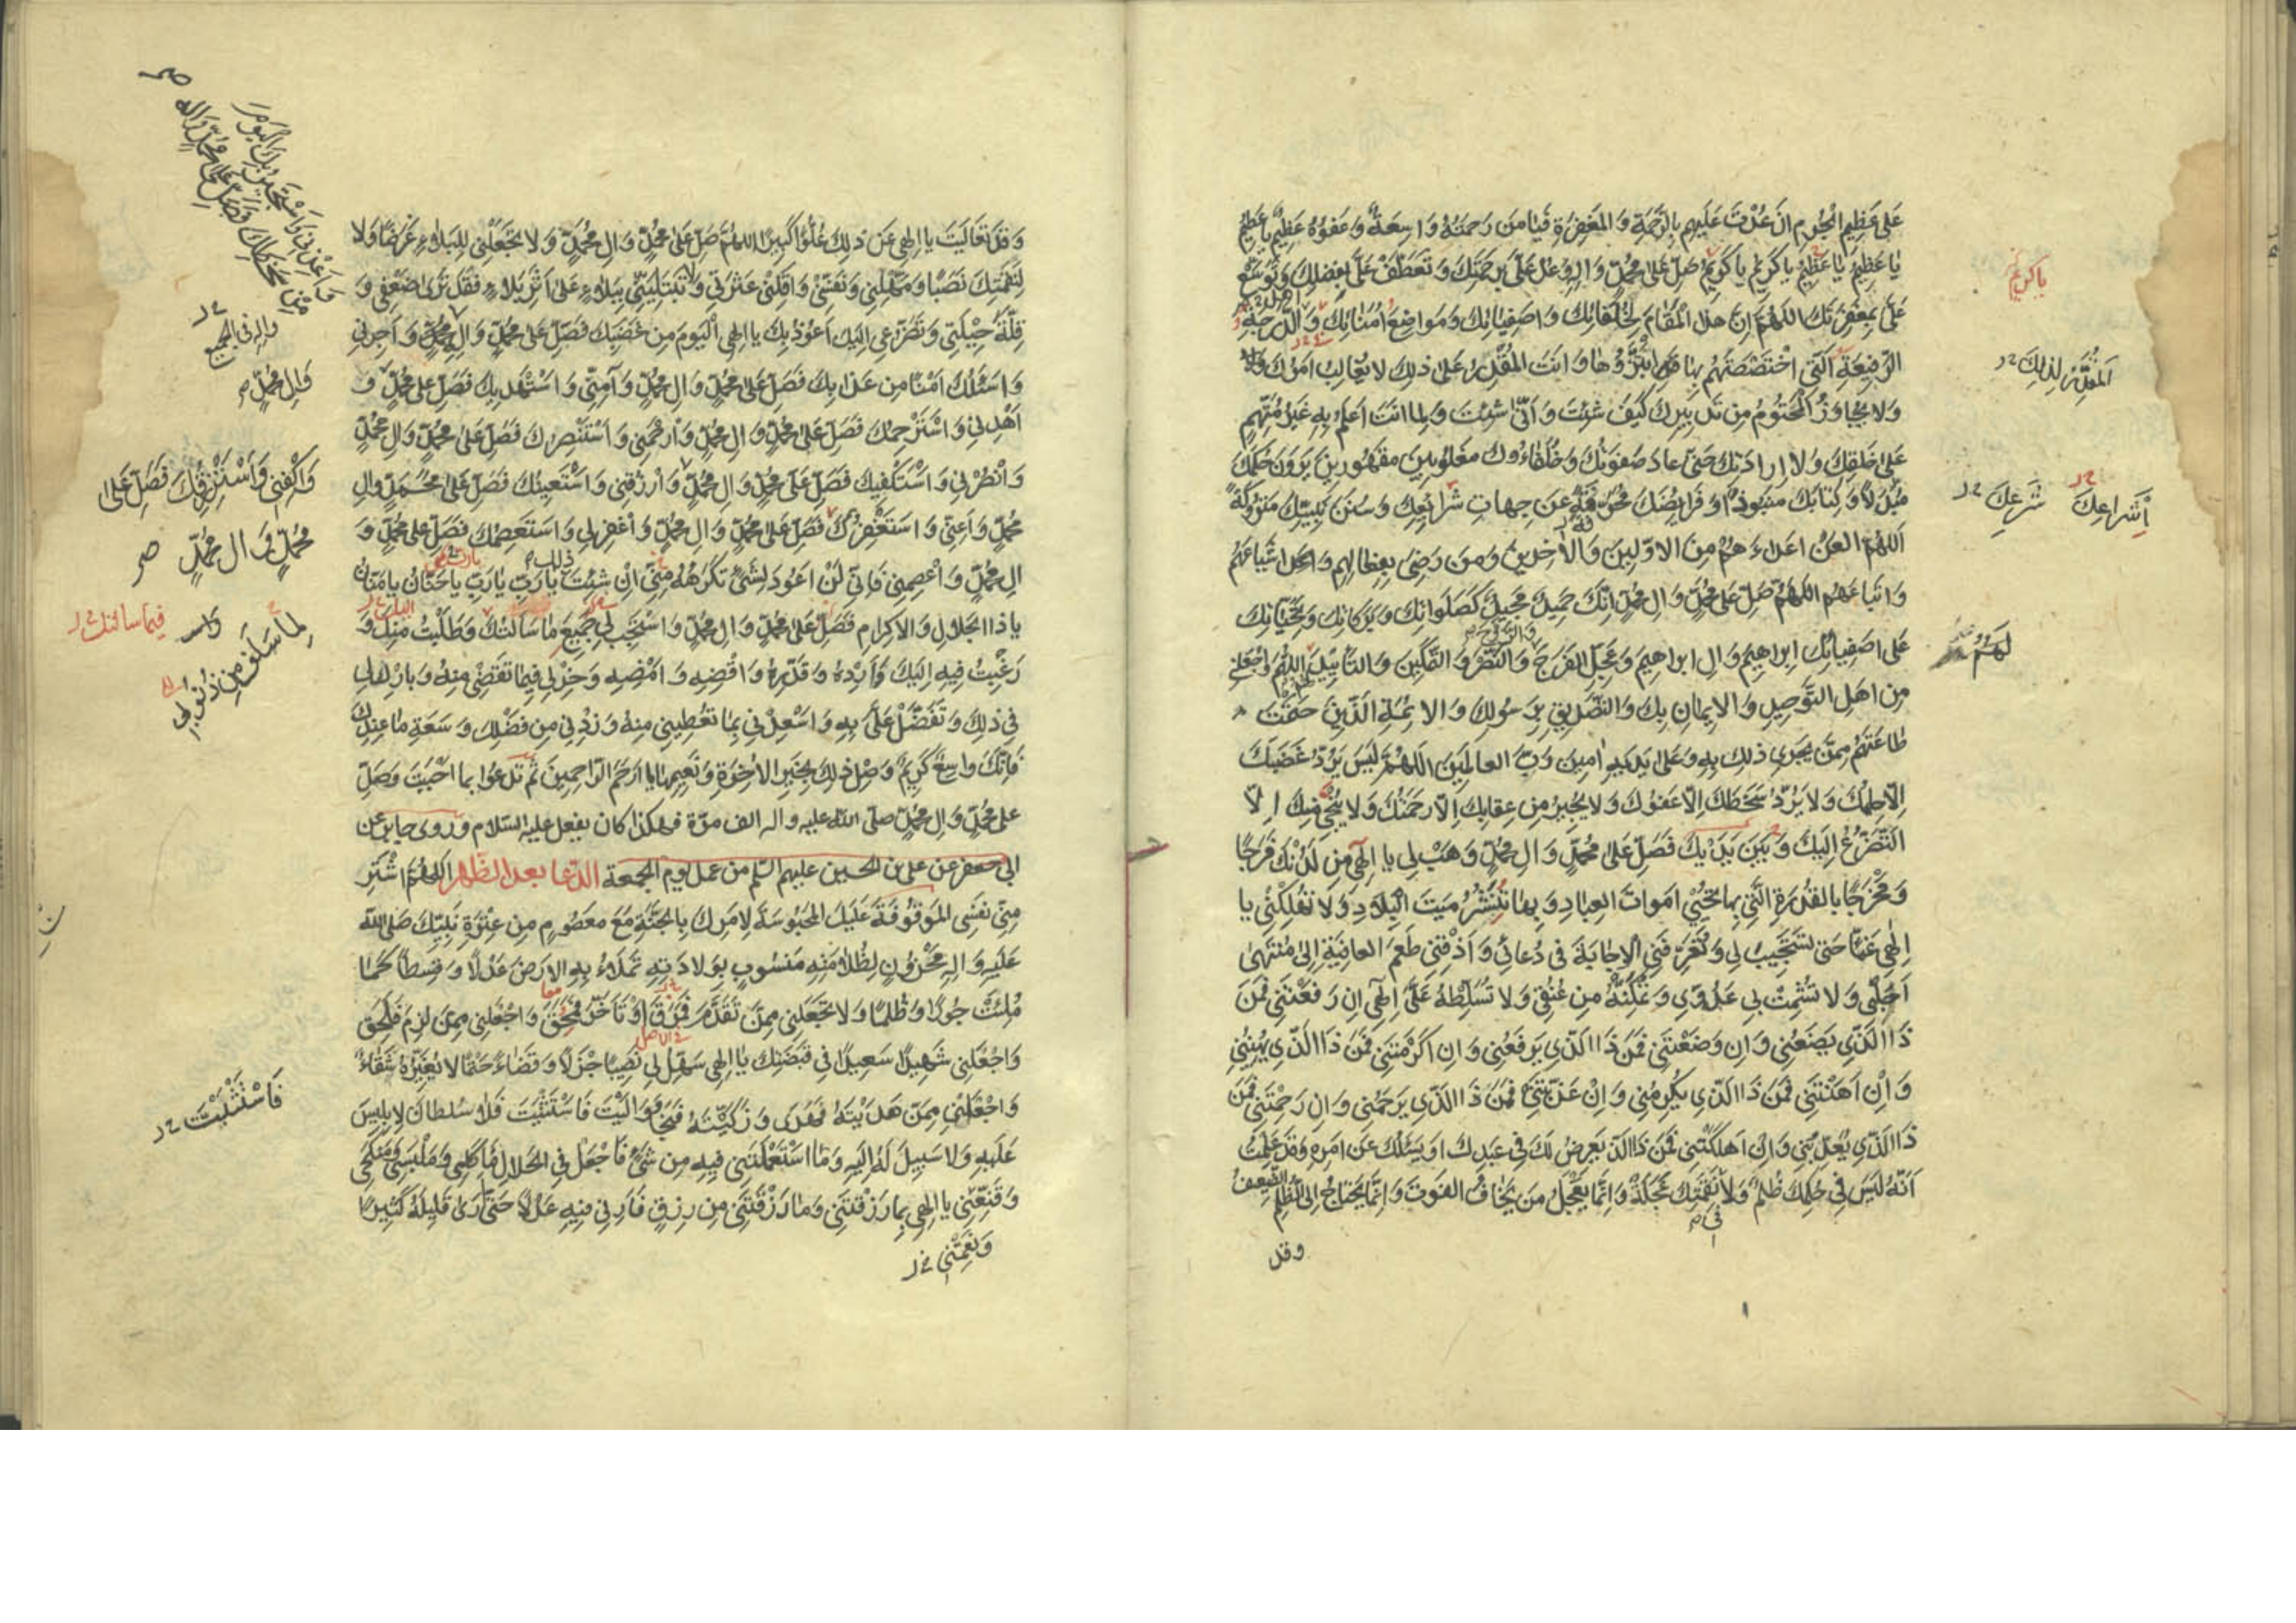 عَلى عَظِيمِ الْجُرْمِ اَنْ عُدْتَ عَلَيْهِم بِالرَّحْمَةِ وَ المَغْفِرَةِ فَيٰا مَن رَحمَتُهُ وَاسِعَةٌ وَ عَفْوُهُ عَظِيمٌ يا عَظِيمُ
يٰا عَظِيمُ يٰا عَظِيمُ يا كَرِيمُ يا كَرِيمُ صَلِّ عَلى مُحَمَّدٍ وَ الِهِ وَعُد عَلَىَّ بِرَحمَتِكَ وَ تَعَطَّفْ عَلَىَّ بِفَضلِكَ وَتَوَسَّعْ
عَلَىَّ بِمَغْفِرَتِكَ اللّهُمَّ اِنَّ هٰذَا الْمَقٰامَ لِخُلَفٰائِكَ وَ اصفِيٰائِكَ وَ مَوٰاضِعَ اُمَنٰائِكَ وَ الدَّرَجَةِ
الرَّفيعَةِ الَّتِى اخْتَصَصْتَهُم بِهٰا قَدِ ابْتَزُّوهٰا وَ انتَ المُقَدِّرُ عَلى ذلِكَ لا يُغالَب امرُكَ وَلا
وَلا يُجٰاوَزُ الْمَحْتُومُ مِن تَدبِيرِكَ كَيْفَ شِئتَ وَ اَنّى شِئتَ وَ لِما انتَ اَعلَمُ بِهِ غَيْرُ مُتَّهَمٍ
عَلى خَلقِكَ وَ لا اِرادَتِكَ حَتّى عادَ صَفوَتُكَ وَ خُلَفٰاءُوكَ مَغلُوبينَ مَقهُورينَ يَرَونَ حُكمَكَ
مُبَدَّلاً وَ كِتابَكَ مَنبُوذًا وَ فَرائِضَكَ مُحَرَّفَةً عَن جِهاتِ شَرايِعِكَ وَ سُنَنَ نَبِيِّكَ مَترُوكَةً
اَللّهُمَّ العَنْ اعداءَهُمْ مِنَ الاوّلينَ وَالآخِرينَ وَ مَن رَضِىَ بِفِعالِهِم وَ
وَ اتباعَهُم اَللّهُمَّ صَلِّ عَلى مُحَمَّدٍ وَ الِ مُحَمَّدٍ اِنَّكَ حَمِيدٌ مَجِيدٌ كَصَلَواتِكَ وَ بَرَكاتِكَ وَ تَحِيّاتِكَ
عَلى اصفِيائِكَ ابراهِيمَ وَ الِ ابراهِيمَ وَ عَجِّلِ الفَرَجَ وَ النَّصرَ وَ التَّمكينَ وَ التأييدَ اللّهُمَّ وَاجعَلنى
مِن اهلِ التَّوحيدِ وَ الايمانِ بِكَ وَ التَّصديقِ بِرَسُولِكَ وَ الائِمَّةِ الَّذِينَ حَتَمتَ
طٰاعَتَهُمْ مِمَّنْ يَجرى ذلِكَ بِهِ وَ عَلى يَدَيهِ امينَ رَبَّ العالَمينَ اللّهُمَّ لَيسَ يَرُدُّ غَضَبَكَ
اِلّا حِلمُكَ وَ لا يَرُدُّ سَخَطَكَ اِلّا عَفوُكَ وَ لا يُجيرُ مِن عِقابِكَ اِلّا رَحمَتُكَ وَ لا يُنجى مِنكَ اِلّا
التَّضَرُّعُ اِلَيكَ وَ بَينَ يَدَيكَ فَصَلِّ عَلى مُحَمَّدٍ وَ الِ مُحَمَّدٍ وَ هَبْ لى يا اِلهى مِن لَدُنكَ فَرَجًا
وَ مَخْرَجًا بِالقُدرَةِ الَّتى بِها تُحْيى اَمواتَ العِبادِ وَ بِها تَنْشُرُ مَيتَ البِلادِ وَ لا تُهلِكْنى يا
اِلٰهى غَمًّا حَتّى تَستَجيبَ لى وَ تُعَرِّفَنِى الاِجابَةَ فى دُعائى وَ اَذِقْنى طَعمَ العافِيَةِ اِلى مُنتَهى
اَجَلى وَ لا تُشمِتْ بى عَدُوّى وَ تُمَكِّنْهُ مِن عُنُقى وَ لا تُسَلِّطهُ عَلَىَّ اِلهى اِن رَفَعتَنى فَمَن
ذَا الَّذى يَضَعُنى وَ اِن وَضَعتَنى فَمَن ذَا الَّذى يَرفَعُنى وَ اِن اَكرَمتَنى فَمَن ذَا الَّذى يُهينُنى
وَ اِنْ اَهَنتَنى فَمَن ذَا الَّذى يُكرِمُنى وَ اِنْ عَذَّبتَنى فَمَن ذَا الَّذى يَرحَمُنى وَ اِن رَحِمْتَنى فَمَن
ذَا الَّذى يُعَذِّبُنى وَ اِن اَهلَكتَنى فَمَن ذَا الَّذى يَعرِضُ لَكَ فى عَبدِكَ اَو يَسئَلُكَ عَن اَمرِهِ وَ قَد عَلِمتُ
اَنَّهُ لَيسَ فى حُكمِكَ ظُلمٌ وَ لا نَقِمَتِكَ عَجَلَةٌ وَ اِنَّما يَعجَلُ مَن يَخافُ الفَوتَ وَ اِنَّما يَحتاجُ اِلَى الظُّلمِ الضَّعيفُ
فى
وقد
يا كريم
المُقَدِّر لذلِكَ
اَشراعِكَ شَرعِكَ
لَهُم
وَ قَد تَعالَيتَ يا اِلهى عَن ذلِكَ عُلُوًّا كَبيرًا اللّهُمَّ صَلِّ عَلى مُحَمَّدٍ وَ الِ مُحَمَّدٍ وَ لا تَجعَلنى لِلبَلاءِ غَرَضًا وَ لا
لِنَقِمَتِكَ نَصَبًا وَ مَهِّلنى وَ نَفِّسنى وَ اَقِلنى عَثرَتى وَ لا تَبتَلِيَنّى بِبَلاءٍ عَلى اَثَرِ بَلاءٍ فَقَد تَرى ضَعفى وَ
قِلَّةَ حيلَتى وَ تَضَرُّعى اِلَيكَ اَعُوذُ بِكَ يا اِلهى اليَومَ مِن غَضَبِكَ فَصَلِّ عَلى مُحَمَّدٍ وَ الِ مُحَمَّدٍ وَ اَجِرنى
وَ اَسئَلُكَ اَمنًا مِن عَذابِكَ فَصَلِّ عَلى مُحَمَّدٍ وَ الِ مُحَمَّدٍ وَ آمِنّى وَ اَستَهديكَ فَصَلِّ عَلى مُحَمَّدٍ وَ
اَهْدِنى وَ اَستَرحِمُكَ فَصَلِّ عَلى مُحَمَّدٍ وَ الِ مُحَمَّدٍ وَ ارحَمنى وَ اَستَنصِرُكَ فَصَلِّ عَلى مُحَمَّدٍ وَ الِ مُحَمَّدٍ
وَ انْصُرْنى وَ اَستَكفيكَ فَصَلِّ عَلى مُحَمَّدٍ وَ الِ مُحَمَّدٍ وَ ارزُقنى وَ اَستَعينُكَ فَصَلِّ عَلى مُحَمَّدٍ وَ الِ
مُحَمَّدٍ وَ اَعِنّى وَ اَستَغفِرُكَ فَصَلِّ عَلى مُحَمَّدٍ وَ الِ مُحَمَّدٍ وَ اغفِر لى وَ اَستَعصِمُكَ فَصَلِّ عَلى مُحَمَّدٍ وَ
الِ مُحَمَّدٍ وَ اعصِمنى فَاِنّى لَنْ اَعُودَ لِشَىءٍ تَكرَهُهُ مِنّى اِنْ شِئتَ يٰا رَبِّ يٰا رَبِّ يا حَنّانُ يا مَنّانُ
يا ذَا الجَلالِ وَ الاِكرامِ فَصَلِّ عَلى مُحَمَّدٍ وَ الِ مُحَمَّدٍ وَ استَجِب لى جَميعَ ما سَأَلتُكَ وَ طَلَبتُ مِنكَ وَ
رَغِبتُ فيهِ اِلَيكَ وَ اَرِدهُ وَ قَدِّرهُ وَ اقضِهِ وَ امضِهِ وَ خِر لى فيما تَقضى مِنهُ وَ بارِك لى
فى ذلِكَ وَ تَفَضَّلْ عَلَىَّ بِهِ وَ اَسعِدنى بِما تُعطينى مِنهُ وَ زِدنى مِن فَضلِكَ وَ سَعَةِ ما عِندَكَ
فَاِنَّكَ واسِعٌ كَريمٌ وَ صِل ذلِكَ بِخَيرِ الاخِرَةِ وَ نَعيمِها يا ارحَمَ الرّاحِمينَ ثُمَّ تَدعُوا بِما احبَبتَ وَ صَلِّ
على مُحَمَّدٍ وَ الِ مُحَمَّدٍ صلّى اللّه عليه و اله الف مرّة فهكذا كان يفعل عليه السّلام و روى جابر عن
ابى جعفر عن على بن الحسين عليهم السّلم من عمل يوم الجمعة الدّعا بعد الظّهر اللهُمَّ اشْتَرِ
مِنّى نَفسِىَ المَوقُوفَةَ عَلَيكَ المَحبُوسَةَ لِامرِكَ بِالجَنَّةِ مَعَ مَعصُومٍ مِن عِترَةِ نَبِيِّكَ صَلَّى اللّه
عَلَيهِ وَ الِهِ مَخزُونٍ لِظُلامَتِهِ مَنسُوبٍ بِوِلادَتِهِ تَملَاءُ بِهِ الارضَ عَدلًا وَ قِسطًا كَما
مُلِئَت جَورًا وَ ظُلمًا وَ لا تَجعَلنى مِمَّن تَقَدَّمَ فَمَرَقَ اَوْ تَاَخَّرَ فَمُحِقَ وَ اجعَلنى مِمَّن لَزِمَ فَلَحِقَ
وَ اجعَلنى شَهيدًا سَعيدًا فى قَبضَتِكَ يا اِلهى سَهِّل لى نَصيبًا جَزلًا وَ قَضاءً حَتمًا لا يُغَيِّرُهُ شَقاءٌ
وَ اجعَلنى مِمَّن هَدَيتَهُ فَهَدى وَ زَكَّيتَهُ فَنَجا وَ والَيتَ فَاستَثنَيتَ فَلا سُلطانَ لِابليسَ
عَلَيهِ وَ لا سَبيلَ لَهُ اِلَيهِ وَ مَا استَعمَلتَنى فيهِ مِن شَىءٍ فَاجعَل فِى الحَلالِ مَأكَلى وَ مَلبَسى وَ مَنكَحى
وَ قَنِّعنى يا اِلهى بِما رَزَقتَنى وَ ما رَزَقتَنى مِن رِزقٍ فَاَرِنى فيهِ عَدلًا حَتّى اَرى قَليلَهُ كَثيرًا
وَنَعِّمْنى
فَاَعِذنى وَ اَستَجيرُ بِكَ اليَومَ
مِن سَخَطِكَ فَصَلِّ عَلى مُحَمَّدٍ وَ اله
واله فى الجميع
وَ الِ مُحَمَّدٍ
وَ اكْفِنى وَ اَسْتَرْزِقُكَ فَصَلِّ عَلى
مُحَمَّدٍ وَ ال مُحَمَّدٍ
فيما سالتك
لِمٰا سَلَفَ مِن ذُنُوبى
فَاسْتَثْبَتَّ